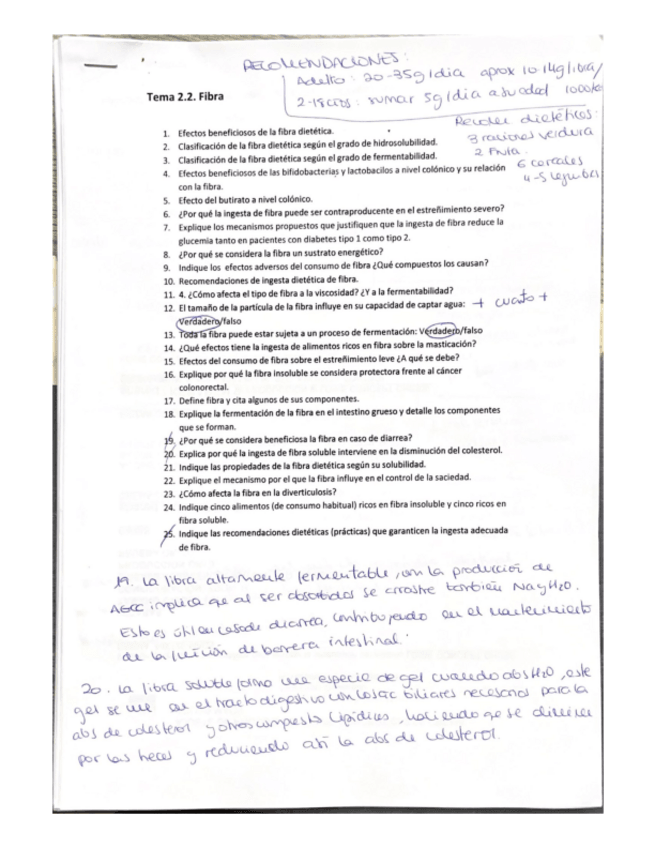 RECOMENDACIONES:
Adulto: 20-35g/día aprox 10-14g fibra/
2-18 años: sumar 5g/día a su edad 1000 kcal
Tema 2.2. Fibra
Recom dietéticos:
3 raciones verdura
2 Fruta.
6 cereales
4-5 legumbres
1. Efectos beneficiosos de la fibra dietética.
2. Clasificación de la fibra dietética según el grado de hidrosolubilidad.
3. Clasificación de la fibra dietética según el grado de fermentabilidad.
4. Efectos beneficiosos de las bifidobacterias y lactobacilos a nivel colónico y su relación
con la fibra.
5. Efecto del butirato a nivel colónico.
6. ¿Por qué la ingesta de fibra puede ser contraproducente en el estreñimiento severo?
7. Explique los mecanismos propuestos que justifiquen que la ingesta de fibra reduce la
glucemia tanto en pacientes con diabetes tipo 1 como tipo 2.
8. ¿Por qué se considera la fibra un sustrato energético?
9. Indique los efectos adversos del consumo de fibra ¿Qué compuestos los causan?
10. Recomendaciones de ingesta dietética de fibra.
11. 4. ¿Cómo afecta el tipo de fibra a la viscosidad? ¿Y a la fermentabilidad?
12. El tamaño de la partícula de la fibra influye en su capacidad de captar agua: + cuanto +
Verdadero/falso
13. Toda la fibra puede estar sujeta a un proceso de fermentación: Verdadero/falso
14. ¿Qué efectos tiene la ingesta de alimentos ricos en fibra sobre la masticación?
15. Efectos del consumo de fibra sobre el estreñimiento leve ¿A qué se debe?
16. Explique por qué la fibra insoluble se considera protectora frente al cáncer
colonorectal.
17. Define fibra y cita algunos de sus componentes.
18. Explique la fermentación de la fibra en el intestino grueso y detalle los componentes
que se forman.
19. ¿Por qué se considera beneficiosa la fibra en caso de diarrea?
20. Explica por qué la ingesta de fibra soluble interviene en la disminución del colesterol.
21. Indique las propiedades de la fibra dietética según su solubilidad.
22. Explique el mecanismo por el que la fibra influye en el control de la saciedad.
23. ¿Cómo afecta la fibra en la diverticulosis?
24. Indique cinco alimentos (de consumo habitual) ricos en fibra insoluble y cinco ricos en
fibra soluble.
25. Indique las recomendaciones dietéticas (prácticas) que garanticen la ingesta adecuada
de fibra.
19. La fibra altamente fermentable, con la producción de
AGCC implica que al ser absorbidos se arrastre también Na y H2O.
Esto es útil en casos de diarrea, contribuyendo en el mantenimiento
de la función de barrera intestinal.
20. La fibra soluble forma una especie de gel cuando abs H2O, este
gel se une en el tracto digestivo con los ác biliares necesarios para la
abs de colesterol y otros compuestos lipídicos, haciendo que se eliminen
por las heces y reduciendo así la abs de colesterol.